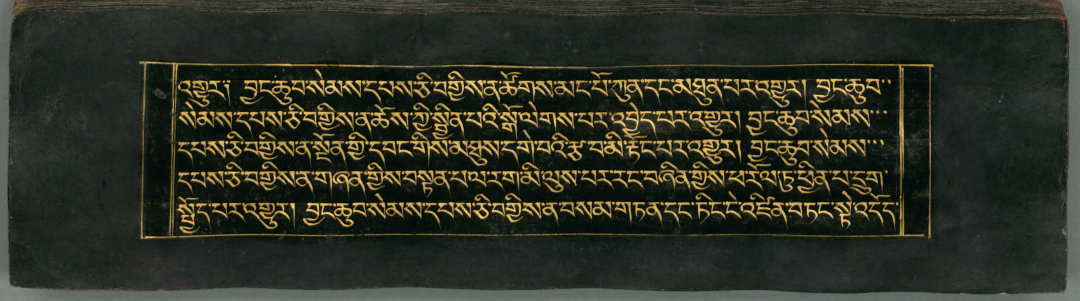 འགྱུར། བྱང་ཆུབ་སེམས་དཔས་ཅི་བགྱིས་ན་ཚོགས་མང་པོ་ཀུན་དང་མཐུན་པར་འགྱུར། བྱང་ཆུབ་
སེམས་དཔས་ཅི་བགྱིས་ན་ཆོས་ཀྱི་སྦྱིན་པའི་སྒོ་ལེགས་པར་འབྱེད་པར་འགྱུར། བྱང་ཆུབ་སེམས་
དཔས་ཅི་བགྱིས་ན་སྔོན་གྱི་དབང་གིས་མཐུས་དགེ་བའི་རྩ་བ་མི་རྟོང་པར་འགྱུར། བྱང་ཆུབ་སེམས་
དཔས་ཅི་བགྱིས་ན་གཞན་གྱིས་བསྟན་པ་ལ་རག་མི་ལུས་པར་རང་བཞིན་གྱིས་ཕ་རོལ་ཏུ་ཕྱིན་པ་དྲུག་
སྤྱོད་པར་འགྱུར། བྱང་ཆུབ་སེམས་དཔས་ཅི་བགྱིས་ན་བསམ་གཏན་དང་ཏིང་ངེ་འཛིན་བཏང་སྟེ་འདོད་